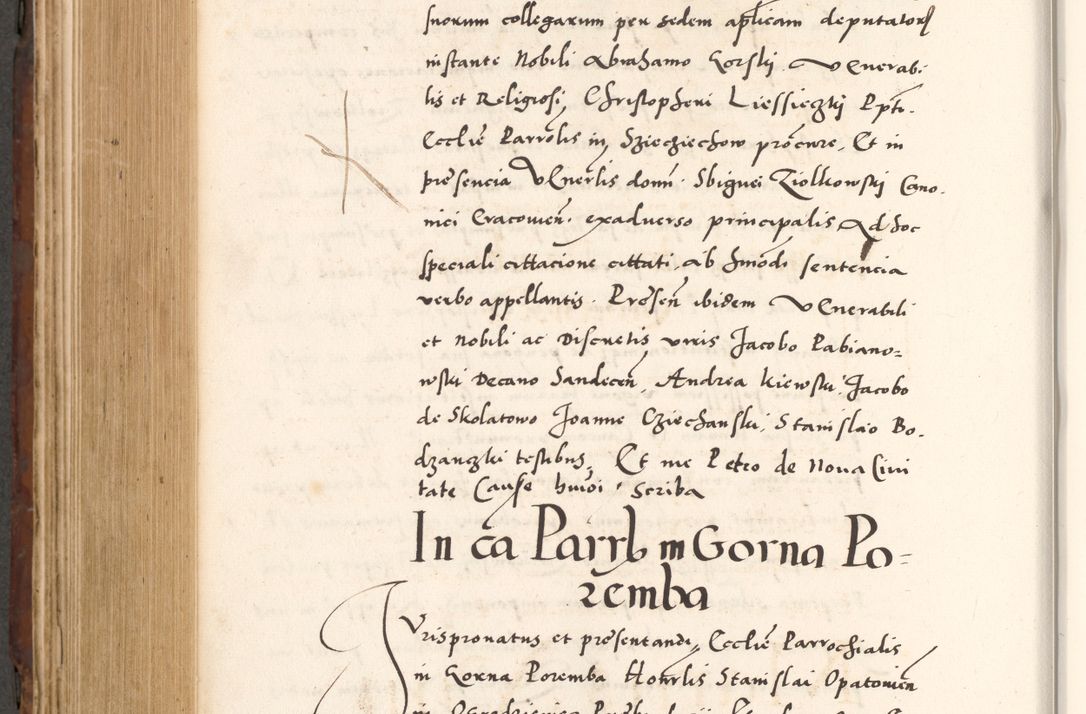 suorum collegarum per sedem aplicam deputatorum
instante Nobili Abrahamo Gorski Venerabi-
lis et Religiosi Christopheri Liessieczki Ppti.
Ecclie Parrolis in Szieziechow procure, Et in
presencia Venerlis domn. Sbignei Ziolkowski Cano-
nici Cracovien. exadverso principalis Ad hoc
speciali cittacione cittati, ab hmodi sentencia
verbo appellantis. Presen ibidem Venerabili
et Nobili ac Discretis viris Jacobo Pabiano=
wski Decano Sandecen, Andrea Kiewski, Jacobo
de Skolatowo Joanne Cziechanski, Stanislao Bo-
dzanczki testibus, Et me Petro de Nova Civi
tate Causse huioi. Scriba
In ca Parrlis in Gorna Po=
remba
Jurispronatus et presentandi, Ecclie Parrochialis
in Gorna Poremba Honrlis Stanislai Opatovien